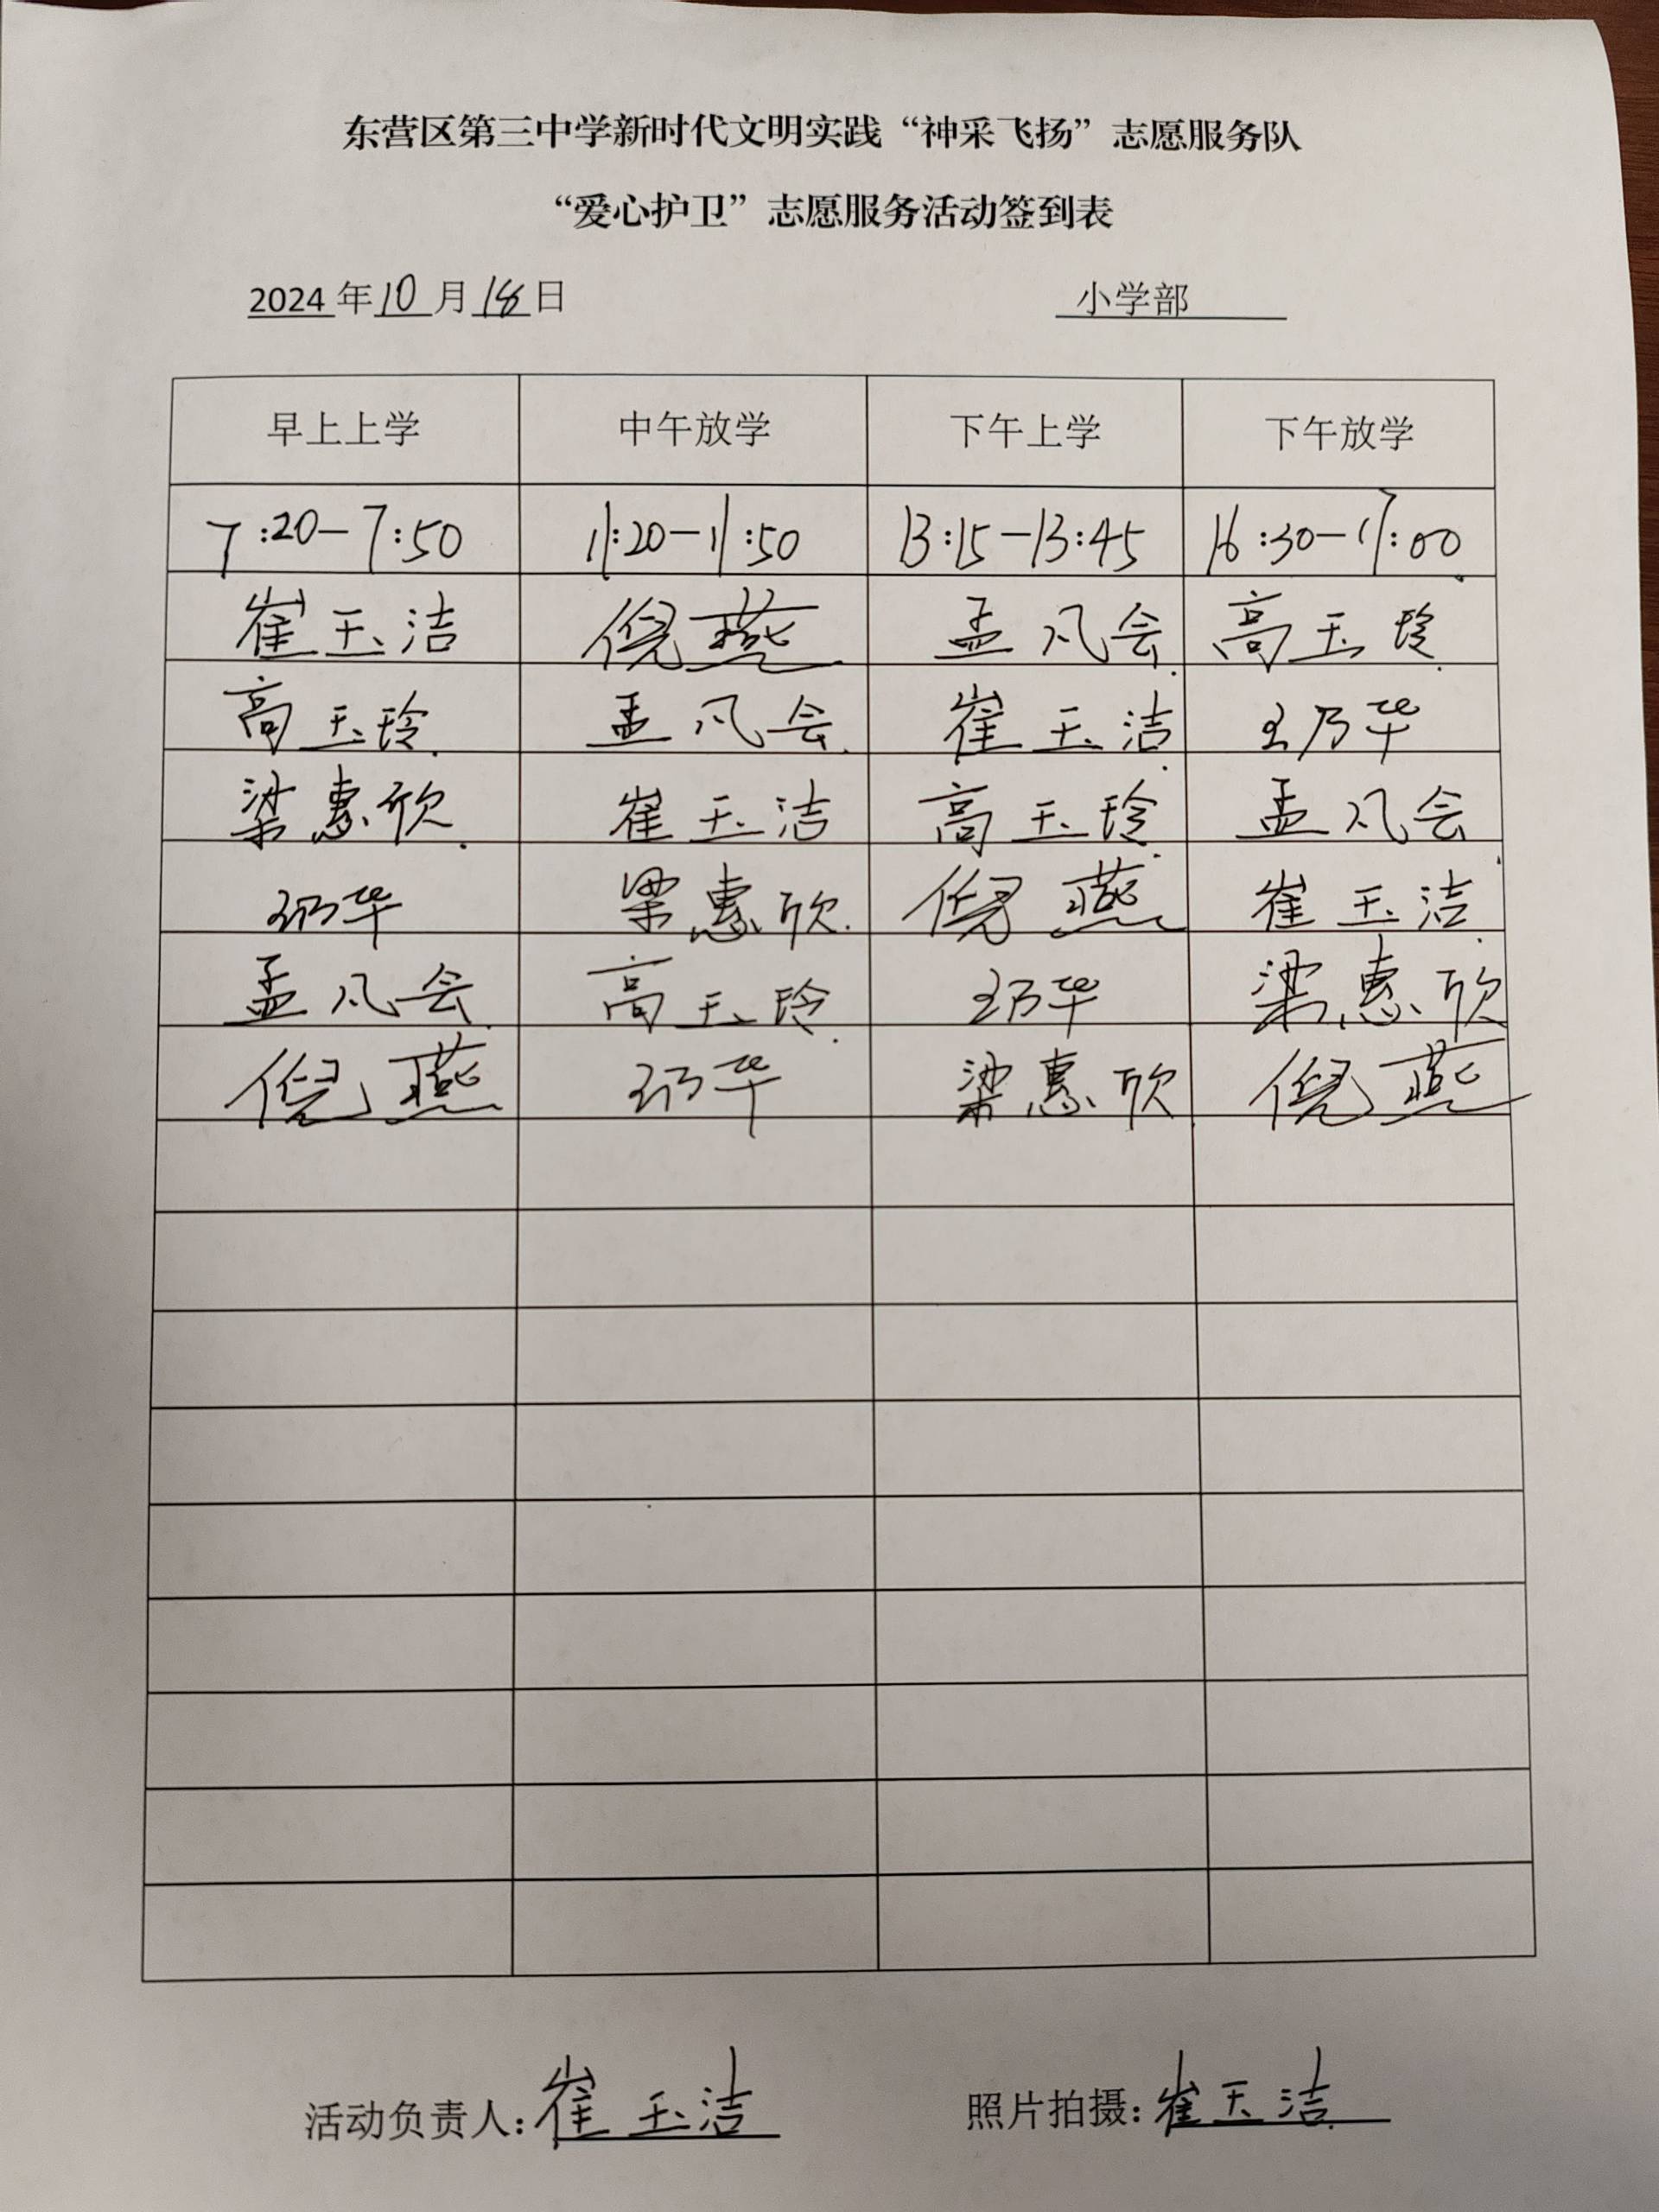 东营区第三中学新时代文明实践“神采飞扬”志愿服务队
“爱心护卫”志愿服务活动签到表
2024年10月18日 小学部
早上上学 中午放学 下午上学 下午放学
7:20-7:50 11:20-11:50 13:15-13:45 16:30-17:00
崔玉洁 倪燕 孟凡会 高玉玲
高玉玲 孟凡会 崔玉洁 王乃华
梁惠欣 崔玉洁 高玉玲 孟凡会
王乃华 梁惠欣 倪燕 崔玉洁
孟凡会 高玉玲 王乃华 梁惠欣
倪燕 王乃华 梁惠欣 倪燕
活动负责人:崔玉洁 照片拍摄:崔玉洁